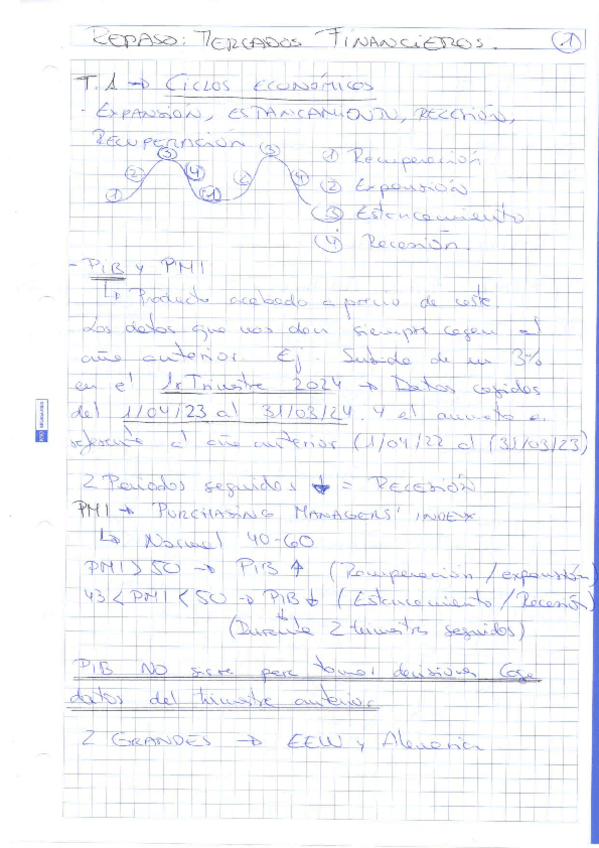 REPASO: MERCADOS FINANCIEROS. 1
T.1 → CICLOS ECONÓMICOS
- EXPANSIÓN, ESTANCAMIENTO, RECESIÓN,
RECUPERACIÓN
① ② ③ ④ ① ② ③ ④
① Recuperación
② Expansión
③ Estancamiento
④ Recesión.
- PIB y PMI
↳ Producto acabado a precio de coste.
Los datos que nos dan siempre cogen el
año anterior. Ej. Subida de un 3%
en el 1r Trimestre 2024 → Datos cogidos
del 1/04/23 al 31/03/24. Y el aumento es
referente al año anterior (1/04/22 al (31/03/23)
2 Periodos seguidos ↓ = RECESIÓN
PMI → PURCHASING MANAGERS' INDEX
↳ Normal 40-60
PMI > 50 → PIB ↑ (Recuperación / expansión)
43 < PMI < 50 → PIB ↓ (Estancamiento / Recesión)
(Durante 2 trimestres seguidos)
PIB NO sirve para tomar decisiones Coge
datos del trimestre anterior.
2 GRANDES → EEUU y Alemania